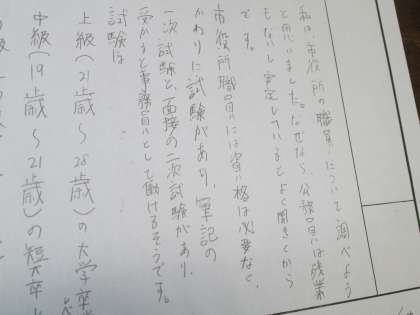 私は、市役所の職員について調べよう
と思いました。なぜなら、公務員は残業
もないし安定しているとよく聞きくから
です。
市役所職員には資格は必要なく、
かわりに試験があり、筆記の
一次試験と、面接の二次試験があり、
受かると事務員として働けるそうです。
試験は
上級(21歳〜28歳)の大学卒
中級(19歳〜21歳)の短大卒